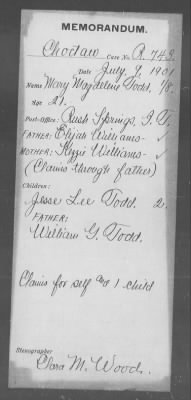 MEMORANDUM.
Choctaw Case No. R. 743.
Date July 1, 1901
Name Mary Magdeline Todd, 1/8.
Age 21.
Post-Office: Rush Springs, I. T.
FATHER: Elijah Williams
MOTHER: Kezzie Williams
(Claims through father)
Children:
Jesse Lee Todd 2.
FATHER:
William G. Todd.
Claims for self and 1 child
Stenographer
Clara M. Wood.